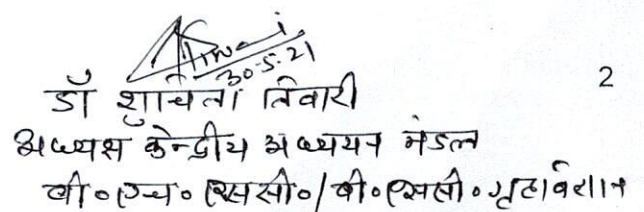 30-5-21
2
डॉ शुचिता तिवारी
अध्यक्ष केन्द्रीय अध्ययन मंडल
बी०एच० एससी०/बी०एससी० गृहविज्ञान